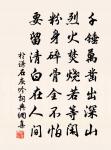 千锤万凿出深山
烈火焚烧若等闲
粉身碎骨全不怕
要留清白在人间
于谦石灰吟词典网壬